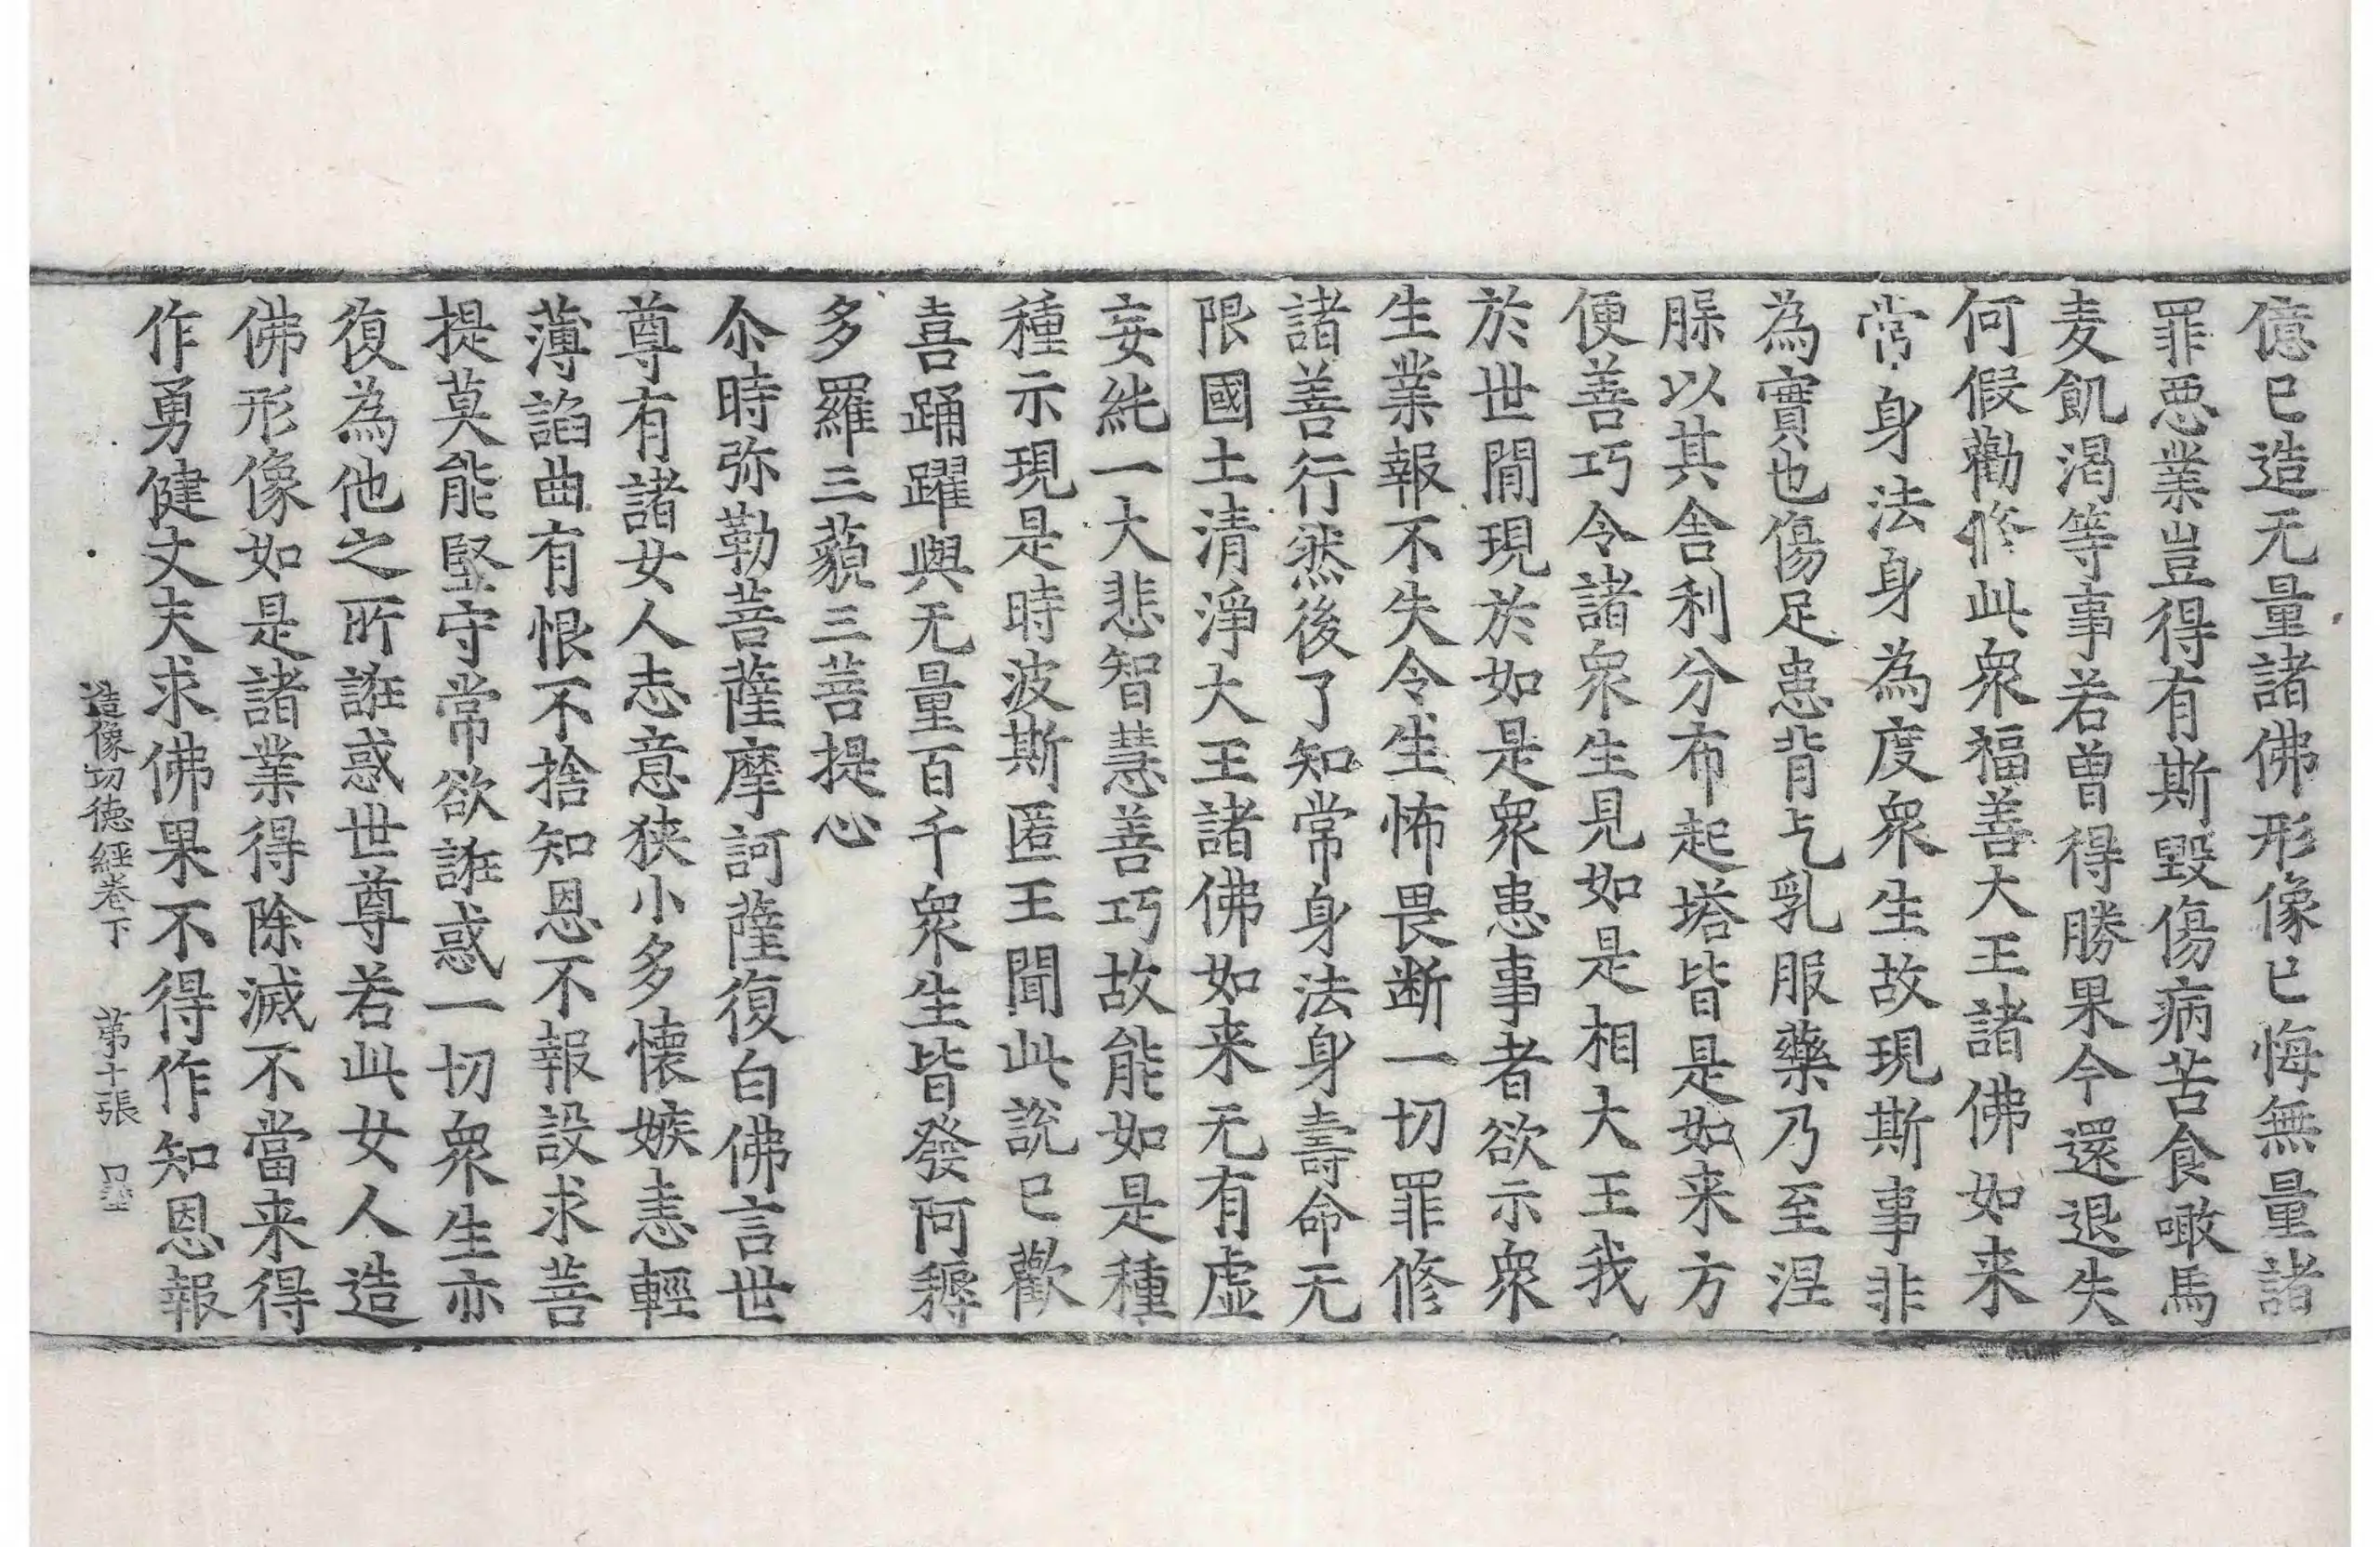 億已造无量諸佛形像已悔無量諸
罪惡業豈得有斯毀傷病苦食噉馬
麦飢渴等事若曾得勝果今還退失
何假勸修此衆福善大王諸佛如来
常身法身為度衆生故現斯事非
為實也傷足患背乞乳服藥乃至涅
膝以其舍利分布起塔皆是如来方
便善巧令諸衆生見如是相大王我
於世間現於如是衆患事者欲示衆
生業報不失令生怖畏断一切罪修
諸善行然後了知常身法身壽命无
限國土清淨大王諸佛如来无有虛
妄純一大悲智慧善巧故能如是種
種示現是時波斯匿王聞此說已歡
喜踊躍與无量百千衆生皆發阿耨
多羅三藐三菩提心
尒時弥勒菩薩摩訶薩復白佛言世
尊有諸女人志意狹小多懷嫉恚輕
薄諂曲有恨不捨知恩不報設求菩
提莫能堅守常欲誑惑一切衆生亦
復為他之所誑惑世尊若此女人造
佛形像如是諸業得除滅不當来得
作勇健丈夫求佛果不得作知恩報
造像功德經卷下 第十張